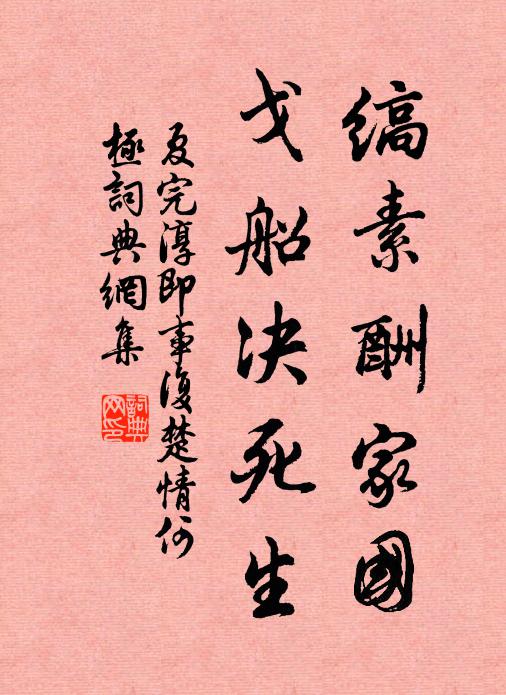 缟素酬家國
戈船决死生
夏完淳即事復楚情何
極詞典網集
詞典
网印